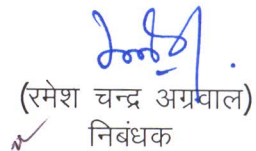 (रमेश चन्द्र अग्रवाल)
निबंधक